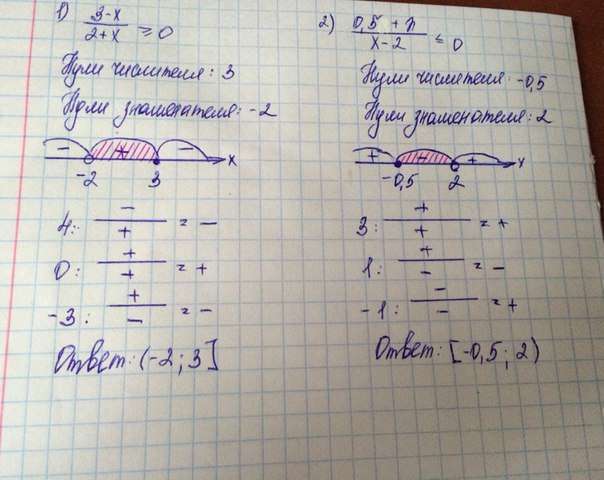 1) (3-x)/(2+x) ≥ 0
Нули числителя: 3
Нули знаменателя: -2
- + - x
-2 3
4: -/+ = -
0: +/+ = +
-3: +/- = -
Ответ: (-2; 3]
2) (0,5 + x)/(x-2) ≤ 0
Нули числителя: -0,5
Нули знаменателя: 2
+ - + x
-0,5 2
3: +/+ = +
1: +/- = -
-1: -/- = +
Ответ: [-0,5; 2)